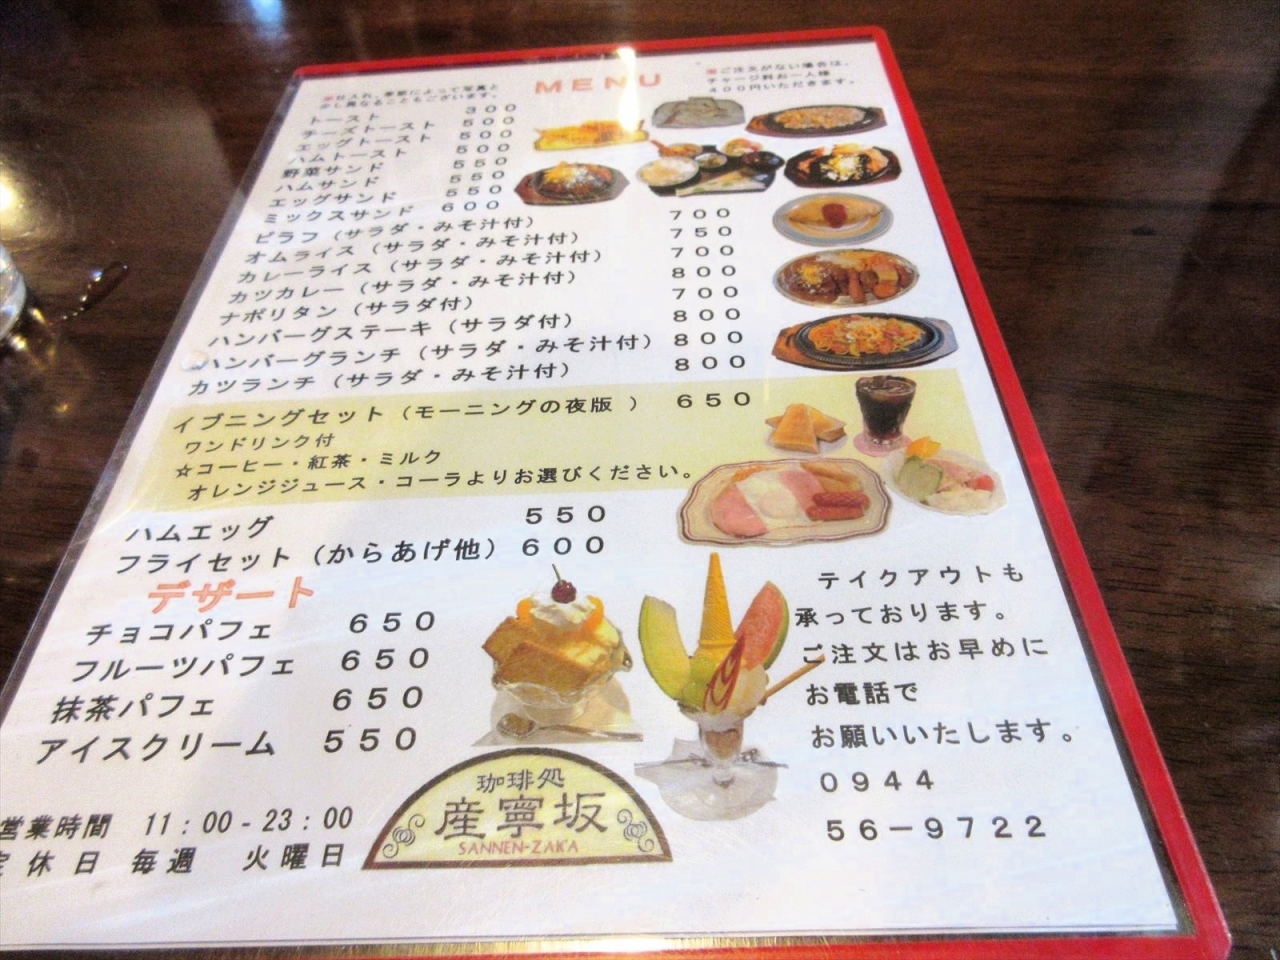 MENU
※仕入れ、季節によって写真と
少し異なることもございます。
※ご注文がない場合は、
チャージ料お一人様
400円いただきます。
トースト 300
チーズトースト 500
エッグトースト 500
ハムトースト 500
野菜サンド 550
ハムサンド 550
エッグサンド 550
ミックスサンド 600
ピラフ(サラダ・みそ汁付) 700
オムライス(サラダ・みそ汁付) 750
カレーライス(サラダ・みそ汁付) 700
カツカレー(サラダ・みそ汁付) 800
ナポリタン(サラダ付) 700
ハンバーグステーキ(サラダ付) 800
ハンバーグランチ(サラダ・みそ汁付) 800
カツランチ(サラダ・みそ汁付) 800
イブニングセット(モーニングの夜版 ) 650
ワンドリンク付
☆コーヒー・紅茶・ミルク
オレンジジュース・コーラよりお選びください。
ハムエッグ 550
フライセット(からあげ他) 600
デザート
チョコパフェ 650
フルーツパフェ 650
抹茶パフェ 650
アイスクリーム 550
テイクアウトも
承っております。
ご注文はお早めに
お電話で
お願いいたします。
0944
56-9722
珈琲処
産寧坂
SANNEN-ZAKA
営業時間 11:00-23:00
定休日 毎週 火曜日